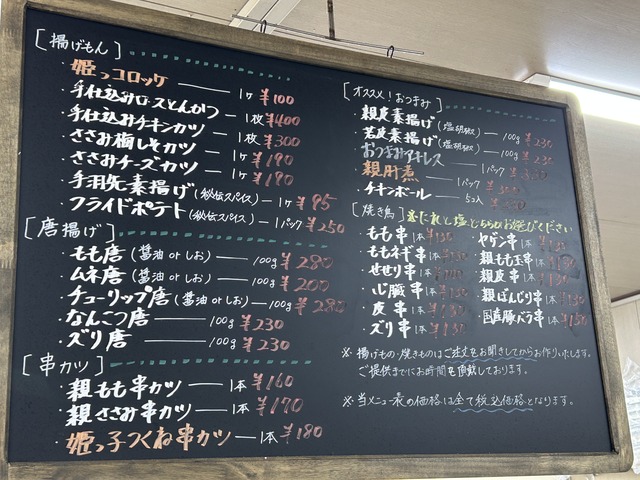 [揚げもん]
・姫っコロッケ ── 1ヶ ¥100
・手仕込みロースとんかつ ─ 1枚 ¥400
・手仕込みチキンカツ ── 1枚 ¥300
・ささみ梅しそカツ ── 1ヶ ¥190
・ささみチーズカツ ── 1ヶ ¥190
・手羽先素揚げ(秘伝スパイス) ─ 1ヶ ¥95
・フライドポテト(秘伝スパイス) ─ 1パック ¥250
[唐揚げ]
・もも唐(醤油 or しお) ── 100g ¥280
・ムネ唐(醤油 or しお) ── 100g ¥200
・チューリップ唐(醤油 or しお) ── 100g ¥280
・なんこつ唐 ── 100g ¥230
・ズリ唐 ── 100g ¥230
[串カツ]
・親もも串カツ ── 1本 ¥160
・親ささみ串カツ ── 1本 ¥170
・姫っ子つくね串カツ ── 1本 ¥180
[オススメ!おつまみ]
・親皮素揚げ(塩胡椒) ─ 100g ¥230
・若皮素揚げ(塩胡椒) ─ 100g ¥230
・おつまみアキレス ── 1パック
・親肝煮 ── 1パック
・チキンボール ── 5コ入
[焼き鳥] ※たれと塩どちらかお選びください
・もも串 1本 ¥130
・ももネギ串 1本 ¥130
・せせり串 1本
・心臓串 1本 ¥130
・皮串 1本 ¥130
・ズリ串 1本 ¥130
・ヤゲン串 1本 ¥130
・親もも玉串 1本
・親皮串 1本 ¥130
・親ぼんじり串 1本 ¥130
・国産豚バラ串 1本 ¥150
※ 揚げもの・焼きものはご注文をお聞きしてからお作りいたします。
ご提供までにお時間を頂戴しております。
※ 当メニュー表の価格は全て税込価格となります。